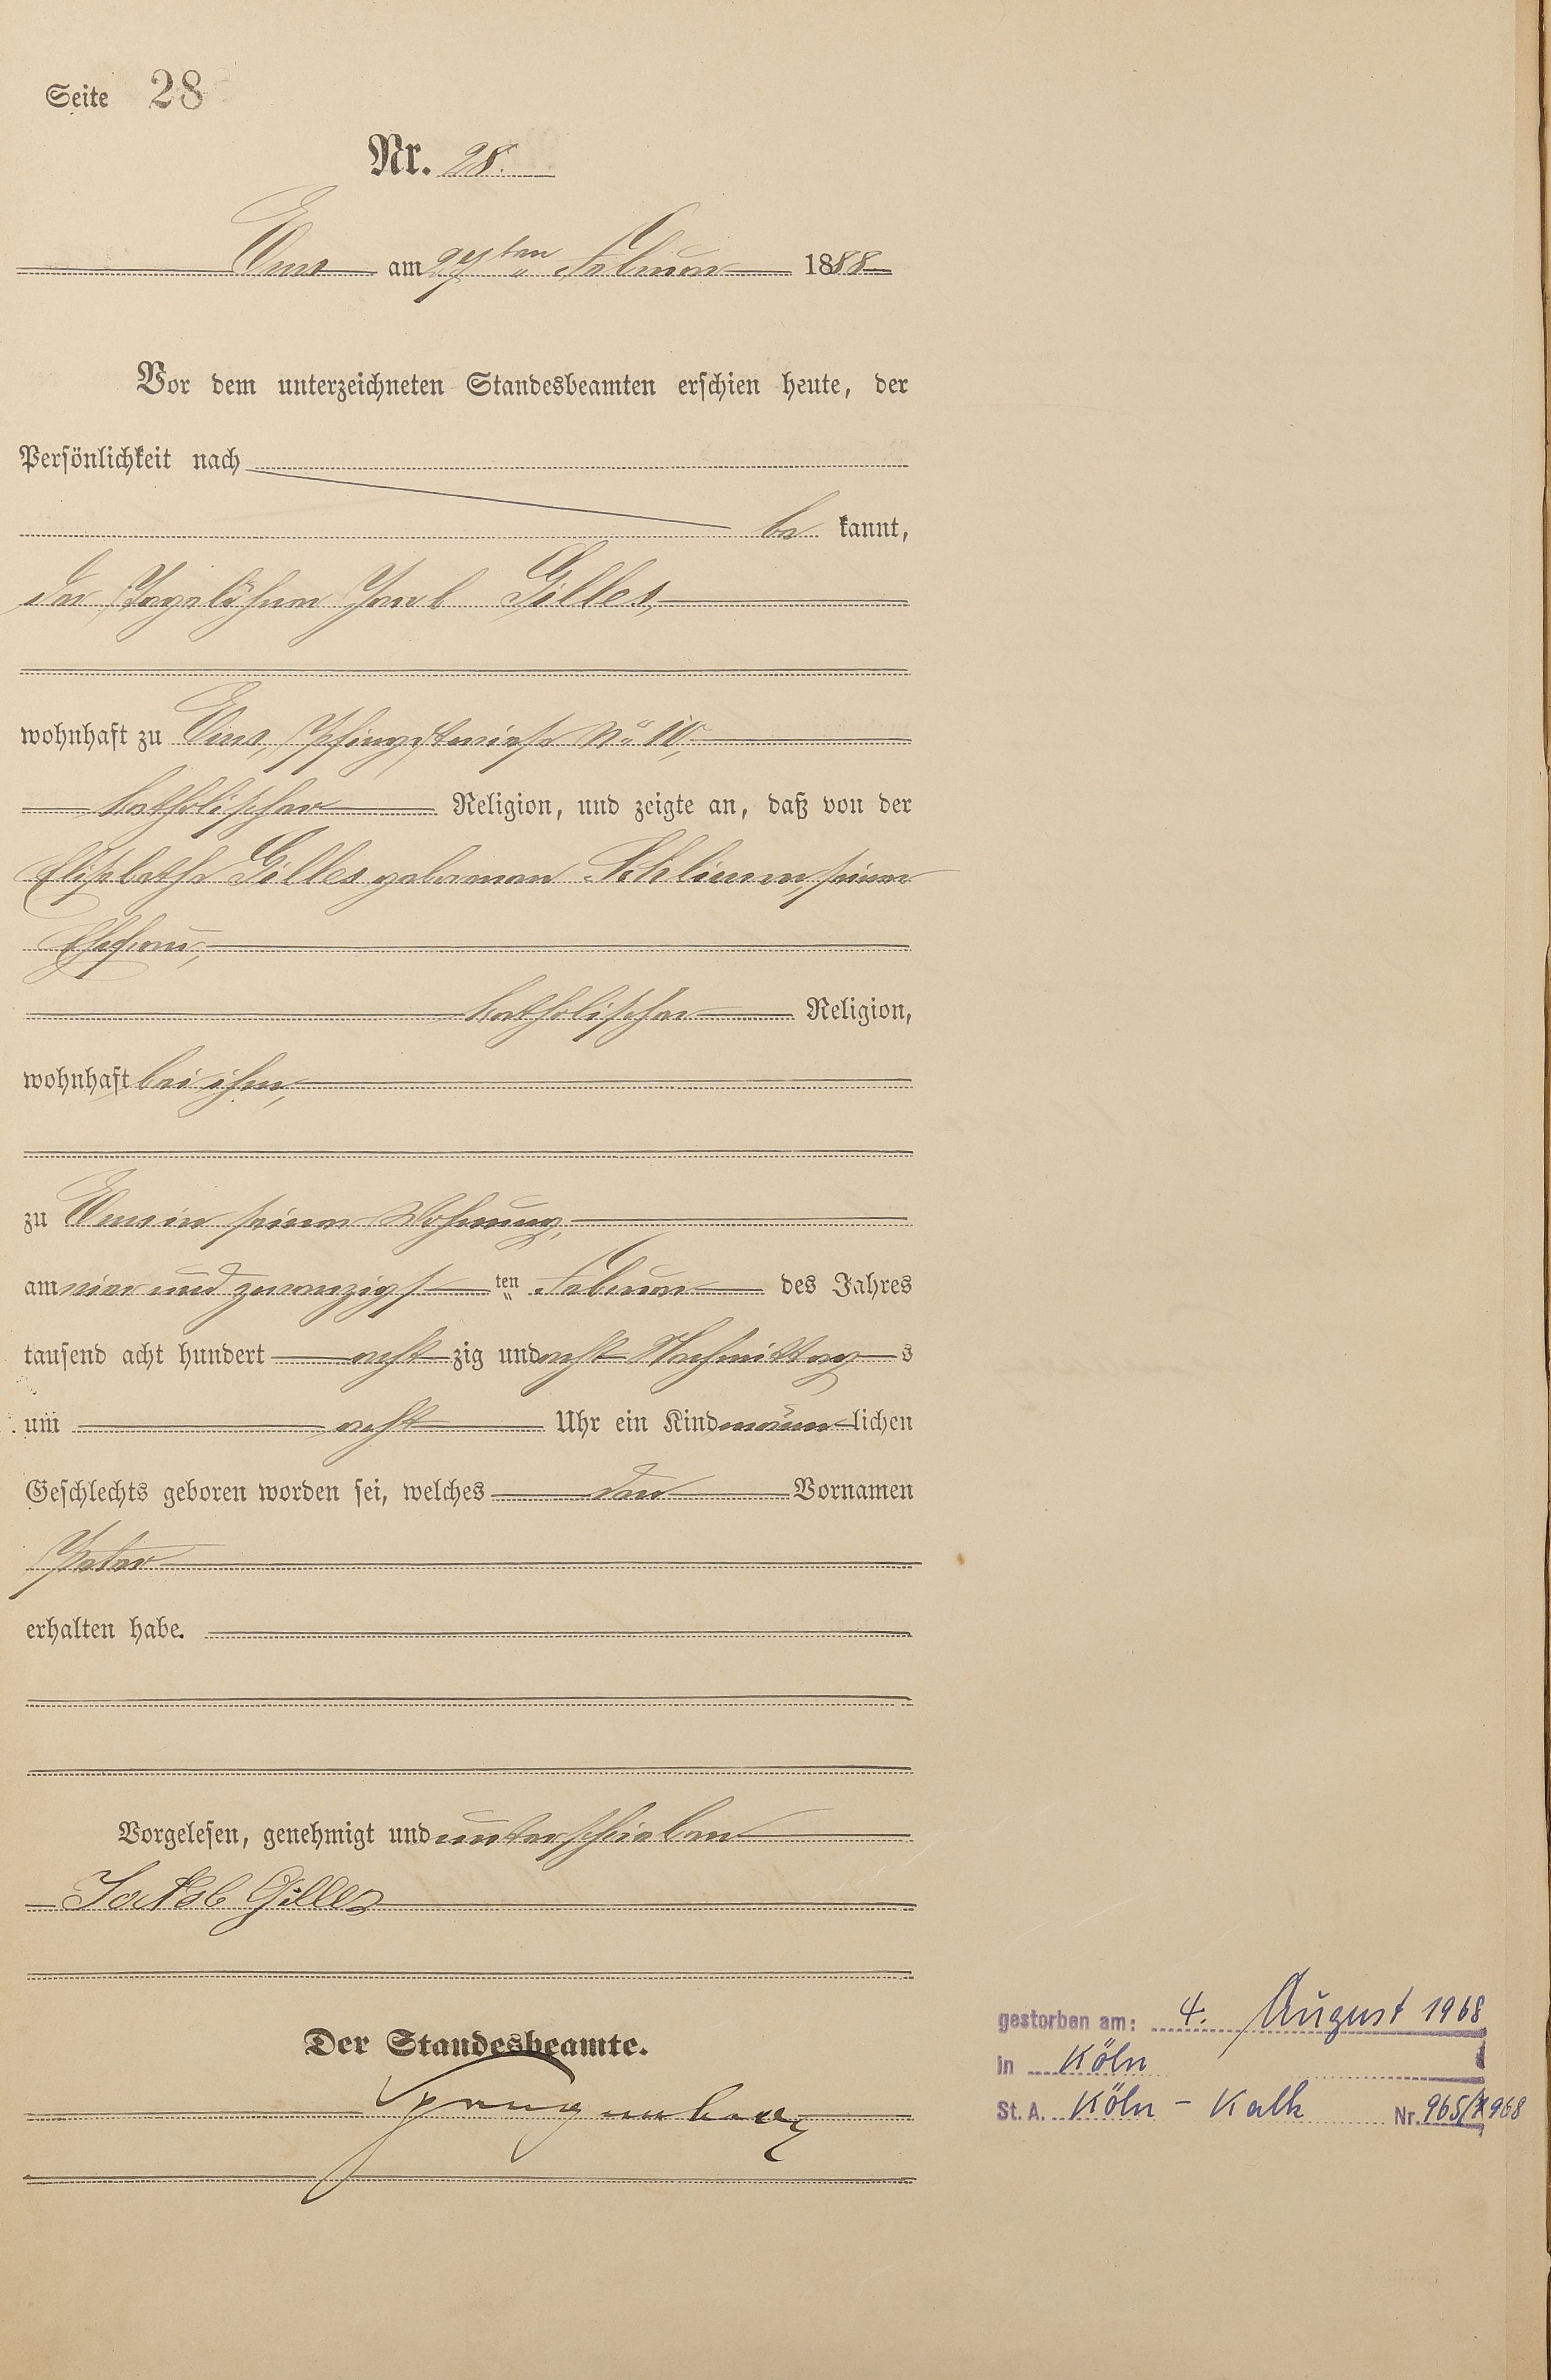 Seite 28
Nr. 28.
Ems am 27ten Februar 1888
Vor dem unterzeichneten Standesbeamten erschien heute, der
Persönlichkeit nach
be kannt,
der Tagelöhner Jacob Gilles,
wohnhaft zu Ems, Pfingstwiese No 10,
katholischer Religion, und zeigte an, daß von der
Elisabetha Gilles geborenen seiner
Ehefrau,
katholischer Religion,
wohnhaft bei ihm,
zu Ems in seiner Wohnung,
am vier und zwanzigsten ten Februar des Jahres
tausend acht hundert acht zig und acht Nachmittags
um acht Uhr ein Kind männlichen
Geschlechts geboren worden sei, welches den Vornamen
Peter
erhalten habe.
Vorgelesen, genehmigt und unterschrieben
Jakob Gilles
Der Standesbeamte.
gestorben am: 4. August 1968
in Köln
St. A. Köln - Kalk Nr. 965/1968